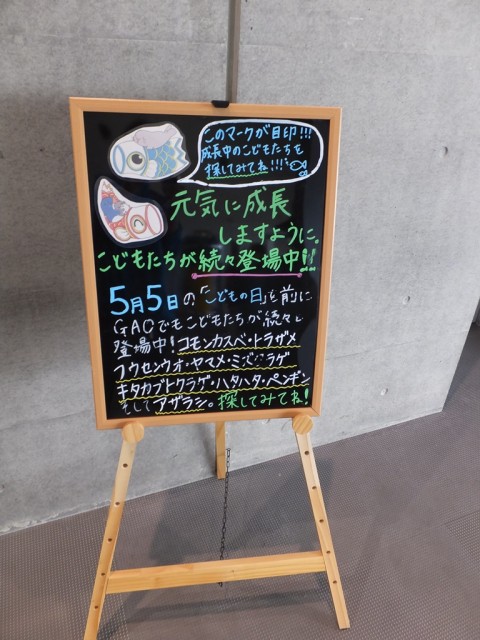 このマークが目印!!!
成長中のこどもたちを
探してみてね!!!
元気に成長
しますように。
こどもたちが続々登場中!!
5月5日の「こどもの日」を前に
GAOでもこどもたちが続々と
登場中!コモンカスベ・トラザメ
フウセンウオ・ヤマメ・ミズクラゲ
キタカブトクラゲ・ハタハタ・ペンギン
そしてアザラシ。探してみてね!